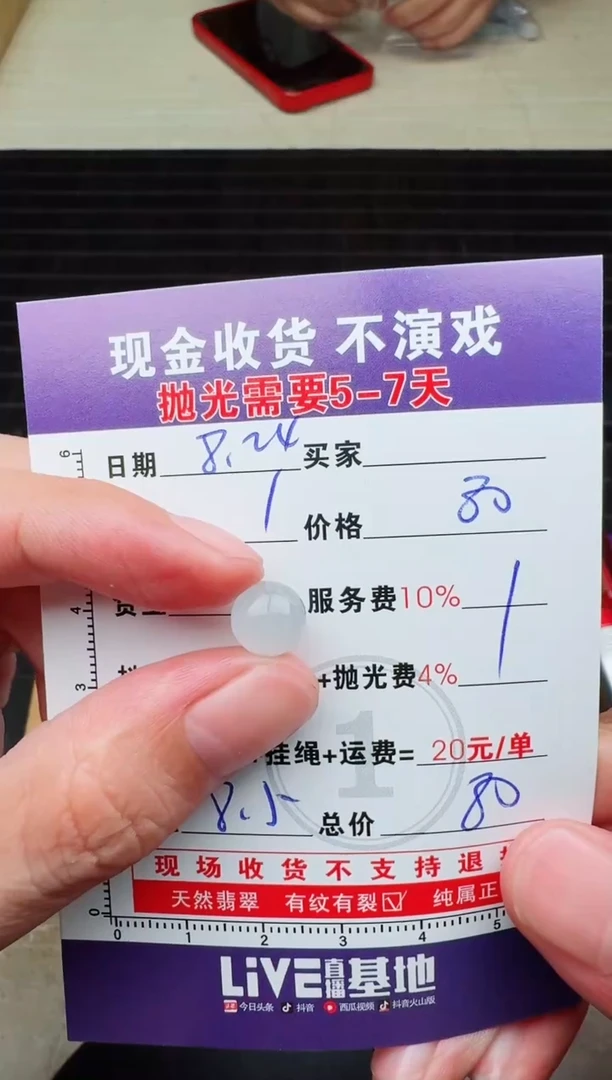 现金收货 不演戏
抛光需要5-7天
日期 8.24 买家
1 价格 80
服务费10%
+抛光费4%
挂绳+运费= 20元/单
8.5 总价 80
现场收货不支持退
天然翡翠 有纹有裂☑ 纯属正
LiVE直播基地
今日头条 抖音 西瓜视频 抖音火山版
6
4
3
0
0 1 2 3 4 5
1